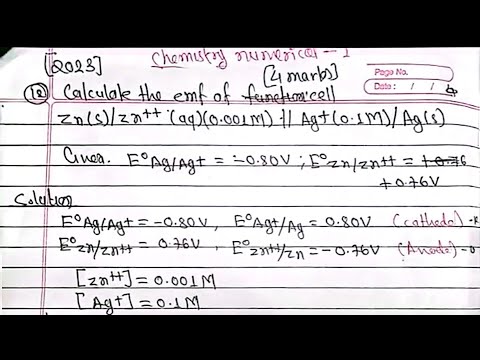 Chemistry numerical - 1
[2023]
[4 marks]
Page No.
Date: / /
(12) Calculate the emf of function cell
Zn(s)/Zn++ (aq)(0.001M) // Ag+(0.1M)/Ag(s)
Given. E°Ag/Ag+ = -0.80V ; E°Zn/Zn++ = +0.76
+0.76V
Solution
E°Ag/Ag+ = -0.80V, E°Ag+/Ag = 0.80V (cathode)
E°Zn/Zn++ = 0.76V, E°Zn++/Zn = -0.76V (Anode)
[Zn++] = 0.001M
[Ag+] = 0.1M